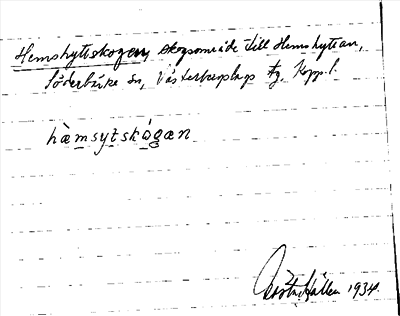 Hemshyttskogen, skogsområde till Hemshyttan,
Söderbärke sn, Västerbergslags tg, Kopp. l.
hæ̀msytskógæn
1934.